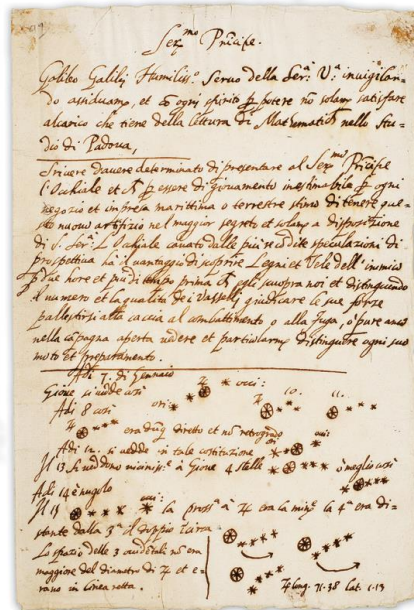 Ser.mo Principe.
Galileo Galilei Humiliss.o Servo della Ser.a V.a invigilan-
do assiduam.te, et cō ogni spirito p potere nō solam.te satisfare
alcarico che tiene della lettura di Mathematich nello Stu-
dio di Padova,
Scrivere davere determinato di presentare al Ser.mo Principe
l'Ochiale et p essere di giovamento inestimabile p ogni
negozio et impresa marittima o terrestre stimo di tenere que-
sto nuovo artifizio nel maggior segreto et solam.te a disposizione
di S. Ser.a L'Ochiale cavato dalle più recondite speculazioni di
prospettiva ha il vantaggio di scoprire Legni et Vele dell'inimico
p due hore et più di tempo prima ch egli scuopra noi et distinguendo
il numero et la qualità de i Vasselli giudicare le sue forze
pallestirsi alla caccia al combattimento o alla fuga, o pure anco
nella capagna aperta vedere et particolarm.te distinguere ogni suo
moto et preparamento.
Adi 7. di Gennaio
Giove si vede così occi:
Adi 8 così ori: 10. 11.
era dūq diretto et nō retrogrado
Adi 12. si vedde in tale costituzione
Il 13 si veddono vicinis.e à Giove 4 stelle ò meglio così
Adi 14 è nugolo
Il 15 occi: la pross.a à ♃ era la min.re la 4.a era di-
stante dalla 3.a il doppio circa
Lo spazio delle 3 occidētali nō era
maggiore del diametro di ♃ et e-
rano in linea retta. ♃ long. 71.38 Lat. 1.13